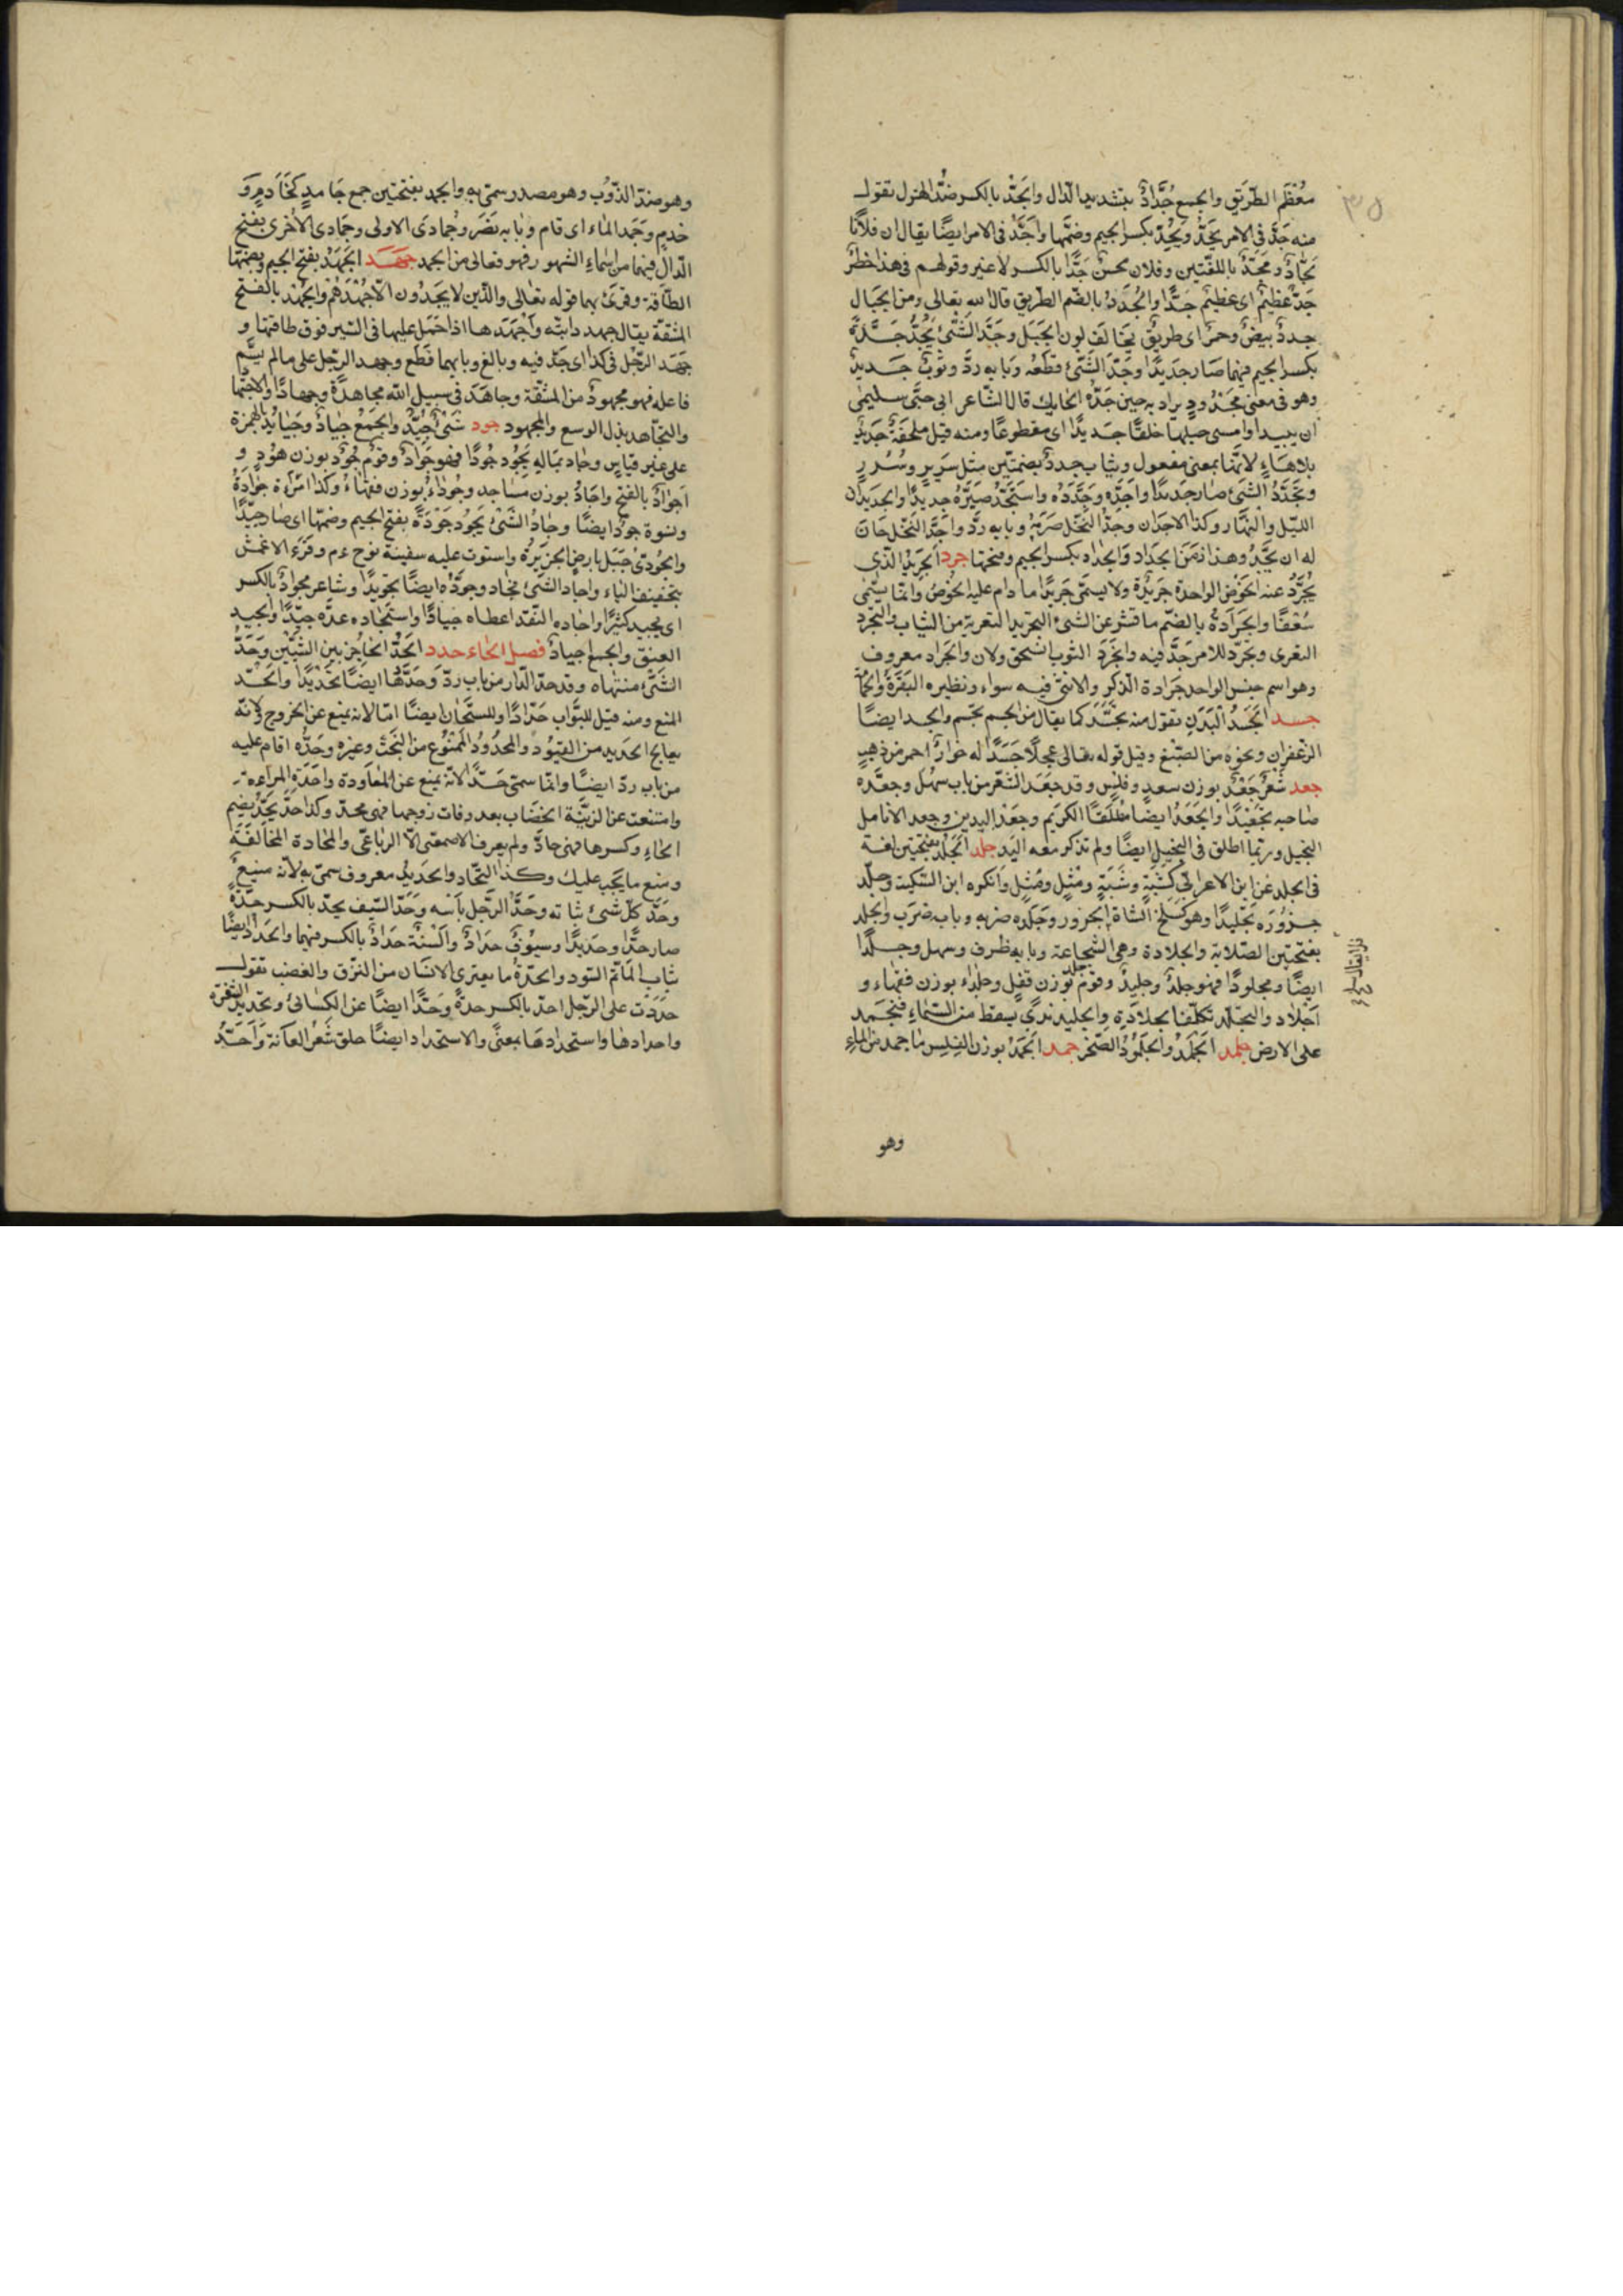 ٣٥
معُظَم الطّرَيق والجمع جُدَّادٌ بتشديد الدّال والجدّ بالكسر ضدّ الهزل تقول
منه جَدَّ فى الامر يجَدّ ويجُدّ بكسر الجيم وضمّها واَجَدَّ فى الامر ايضًا يقال ان فلانًا
لجَادٌّ ومجَدّ باللغّتين وفلان محسنٌ جدًّا بالكسر لا غير وقولهم فى هذا خطرٌ
جدّ عظيمٌ اى عظيمٌ جدًّا والجُدَدُ بالضّم الطّريق قال الله تعالى ومن الجبال
جددٌ بيضٌ وحمرٌ اى طريق تخالف لون الجبل وجَدّ الشّئ يجُدُّ جِدَّةً
بكسر الجيم فيهما صَار جديدًا وجَدّ الشّئ قطعُه وبابه ردَّ وثوبٌ جديدٌ
وهو فى معنى مجْدُودٍ يراد به حين جدّهُ الحايك قال الشّاعر ابى حبّى سليمى
ان يبيدا وامسى حبلها خلقًا جديدًا اى مقطوعًا ومنه قيل ملحفةٌ جديدٌ
بلا هاءٍ لانّها بمعنى مفعول وثياب جددٌ بضمّتين مثل سريرٍ وسُرُرٍ
وتجَدّدُ الشّئ صار جديدًا واجَدَّه وجَدّدَهُ واستجَدّهُ صَيّرَهُ جديدًا والجديدان
الليّل والنهّار وكذا الاجدان وجدّ النّخل صَرَمَهُ وبابه ردَّ واجَدَّ النّخل حَانَ
له ان يجَدُّ وهذا زمَنَ الجداد والجداد بكسر الجيم وفتحها جرد الجريد الّذى
يُجَرّدُ عنه الخوص الواحدة جريدةٌ ولا يسمّى جريدًا ما دام عليه الخوص وانّما يسّمى
سُعَفًا والجرادةُ بالضّم ما قشر عن الشئ التجريد التعرية من الثياب والتجرّد
التعرى وتجرّد للامر جدَّ فيه وانجرَدَ الثوب انسحق ولان والجراد معروف
وهو اسم جنس الواحد جرادة الذكر والانثى فيه سواء ونظيره البقرَةُ والحمامة
جسد الجَسَدُ البَدَنِ تقول منه تجسَّدَ كما يقال من الجسم تجسّم والجسد ايضًا
الزعفران ونحوه من الصّبغ وقيل قوله تعالى عجلًا جَسَدًا له خوارٌ احمر من ذهبٍ
جعد شَعْرٌ جَعْدٌ بوزن سعدٍ وفلسٍ وقد جعَدَ الشعّر من باب سهُل وجعّده
صاحبه تجعيدًا والجَعَدُ ايضًا مطلقًا الكريم وجعد اليدين وجعد الانامل
البخيل وربّما اطلق فى البخيل ايضًا ولم تذكر معه اليد جلد الجَلَدُ بفتحتين لغة
فى الجلد عن ابن الاعرابىّ كشبهٍ وشَبَهٍ ومِثلٍ ومَثَلٍ وانكره ابن السّكيت وجلّد
جزُورَه تجليدًا وهو كسلخ الشاة الجزور وجلده ضربه وباب ضرَب والجلد
بفتحتين الصّلابة والجلادة وهى الشجاعة وبابه ظرف وسهل وجلدًا
ايضًا ومجلودًا فهو جلدٌ وجليدٌ وقوم جلد بوزن قفل وجلداء بوزن فقهاء و
اجلاد والتجلّد تكلّف الجلادة والجليد ندىً يسقط من السّماءِ فيجمد
على الارض جلمد الجَلْمَدُ والجلمُودُ الصّخر جمد الجمَدُ بوزن الفلس ما جمد من الماءِ
وهو
وهو ضدّ الذّوب وهو مصدر سمّى به والجمد بفتحتين جمع جامدٍ كخادمٍ و
خدمٍ وجَمَد الماء اى قام وبابه نصَرَ وجُمادى الاولى وجمادى الاخرى بفتح
الدّال فيهما من اسماءِ الشهور فهو فعالى من الجمد جهد الجَهْدُ بفتح الجيم وبضمّها
الطّاقة وقرئ بهما قوله تعالى والّذين لا يجدون الّا جُهْدَهُم والجَهْدُ بالفتح
المشقّة يقال جهد دابته وأجْهَدَها اذا حَمَل عليها فى السّير فوق طاقتها و
جَهَد الرّجُل فى كذا اى جَدّ فيه وبالغ وبابهما قطَع وجهد الرّجل على مالم يسّم
فاعله فهو مجهودٌ من المشقّة وجاهَدَ فى سبيل اللّه مجاهدةً وجهادًا والاجتهاد
والتجاهد بذل الوسع والمجهود جود شَئٌ جيّدٌ والجَمْعُ جيادٌ وجيائد بالهمزة
على غير قياس وجاد بمالهِ يَجُود جُودًا فهو جَوادٌ وقوم جُودٌ بوزن هُودٍ و
اَجوادٌ بالفتح واجَاوِدُ بوزن مساجد وجُوداءُ بوزن فقهاءُ وكذا امرأة جوادةٌ
ونسوة جودٌ ايضًا وجادُ الشّئ يَجُود جَوْدَةً بفتح الجيم وضمّها اى صار جيّدًا
والجُودىّ جَبَل بارض الجزيرة واستوت عليه سفينة نوح عم وقرَءَ الاعمش
بتخفيف الياء واجاد الشّئ فجاد وجوَّده ايضًا تجويدًا وشاعر مجوادٌ بالكسر
اى يجيد كثيرًا واجاده النقّد اعطاه جيادًا واستَجاده عدّه جيّدًا والجيد
العنق والجمع اجيادٌ فصل الحاء حدد الحَدُّ الحاجُز بين الشيئين وحَدُّ
الشَّئ منتهاه وقد حدّ الدّار من باب ردّ وحَدّهُا ايضًا تحديدًا والحدّ
المنع ومنه قيل للبوّاب حَدّادًا وللسجّان ايضًا امّا لانه يمنع عن الخروج او لانّه
يعالج الحديد من القيود والمحدُودُ الممنُوع من البَخْت وغيره وحَدُّه اقام عليه
من باب ردّ ايضًا وانّما سمّى حدًّا لانّه يمنع عن المعاودة واحدّت المراءة
وامتنعت عن الزيَّنة الخضاب بعد وفات زوجها فهى محدّ وكذا حدّ يحُدّ بضم
الحاء وكسرها فهى حادّ ولم يعرف الاصمعى الّا الرباعىّ والمحادة المخالفَةُ
ومنع ما يجب عليك وكذا التّحاد والحديد معروف سمىّ به لانّه منيعٌ
وحدّ كلّ شئ شباته وحَدُّ الرّجل بأسه وحَدّ السّيف يحدّ بالكسر حدّةً
صار حدًّا وحديدًا وسيُوفٌ حدادٌ والسنةٌ حدادٌ بالكسر فيهما والحداد ايضًا
ثياب المأتم السّود والحدّةُ ما يعترى الانسان من النزّق والغضب تقول
حدَدْت على الرّجل احدّ بالكسر حدةً وحَدًّا ايضًا عن الكسائى وتحديد الشفرة
واحدادها واستحدادها بمعنًى والاستحداد ايضًا حلق شَعْر العانة واَحَدَّ